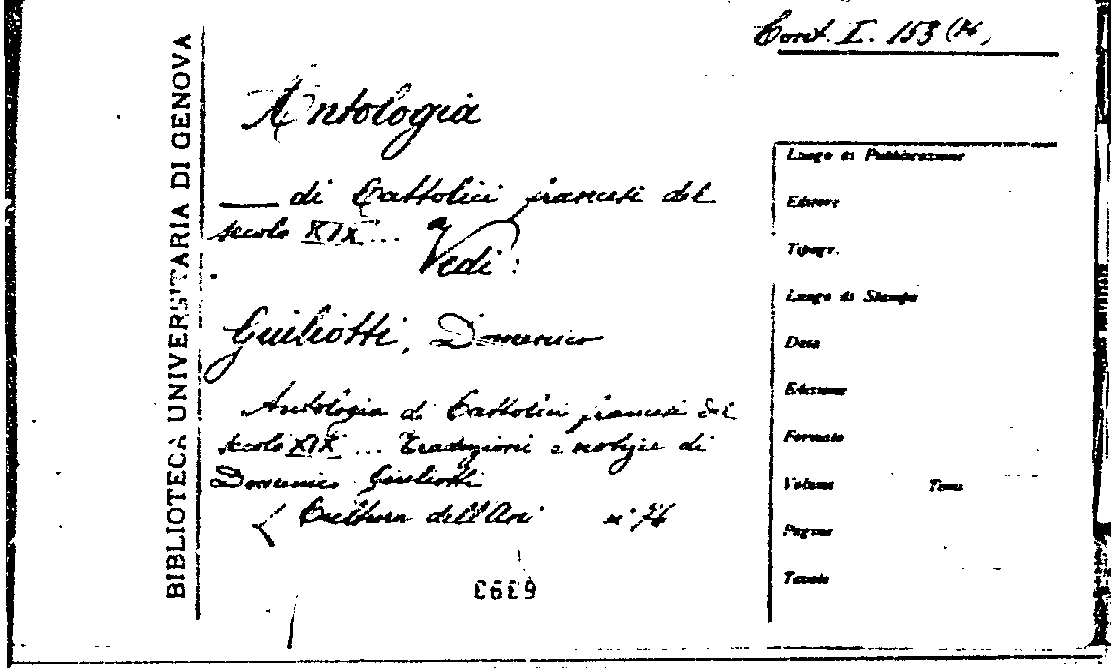 BIBLIOTECA UNIVERSITARIA DI GENOVA
Cont. I. 153 (14)
Antologia
___ di Cattolici francesi del
secolo XIX ...
Vedi :
Giuliotti, Domenico
Antologia di Cattolici francesi del
secolo XIX ... Traduzioni e notizie di
Domenico Giuliotti
( Cultura dell'
6393
Luogo di Pubblicazione
Editore
Tipogr.
Luogo di Stampa
Data
Edizione
Formato
Volume Tomo
Pagine
Tavole